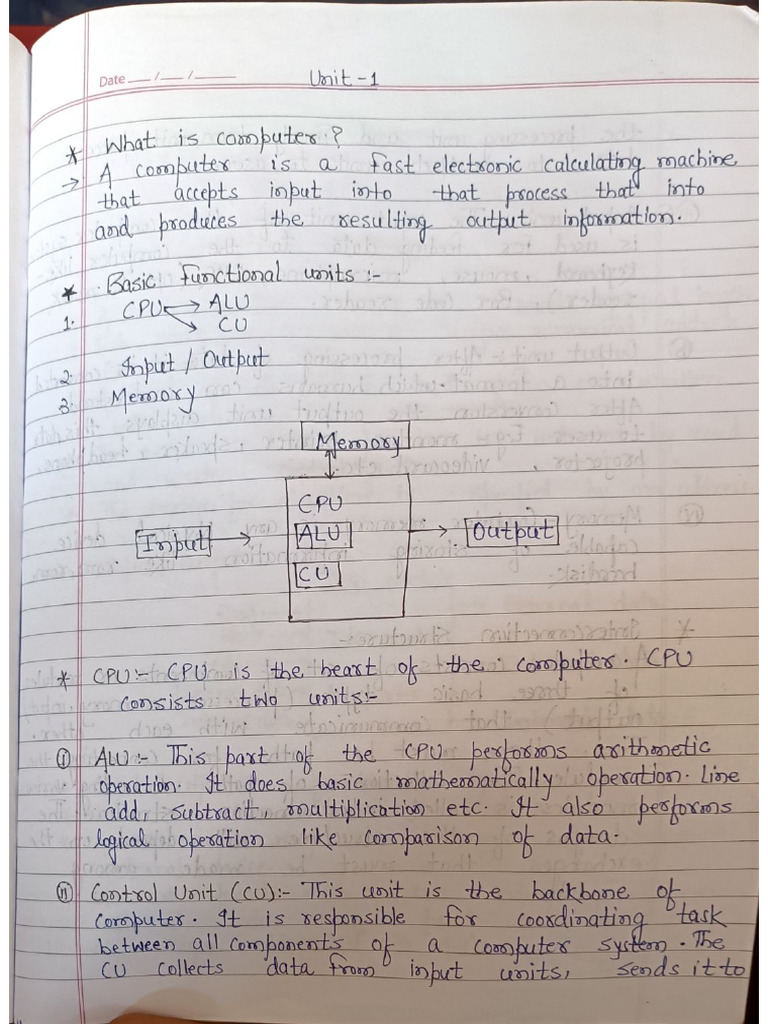 Date __/__/____
Unit-1
* What is computer?
→ A computer is a fast electronic calculating machine
that accepts input into that process that into
and produces the resulting output information.
* Basic functional units:-
1. CPU → ALU
→ CU
2. Input / Output
3. Memory
Memory
CPU
ALU
CU
Input
Output
* CPU:- CPU is the heart of the computer. CPU
consists two units:-
(i) ALU:- This part of the CPU performs arithmetic
operation. It does basic mathematically operation. Line
add, subtract, multiplication etc. It also performs
logical operation like comparison of data.
(ii) Control Unit (CU):- This unit is the backbone of
computer. It is responsible for coordinating task
between all components of a computer system. The
CU collects data from input units, sends it to